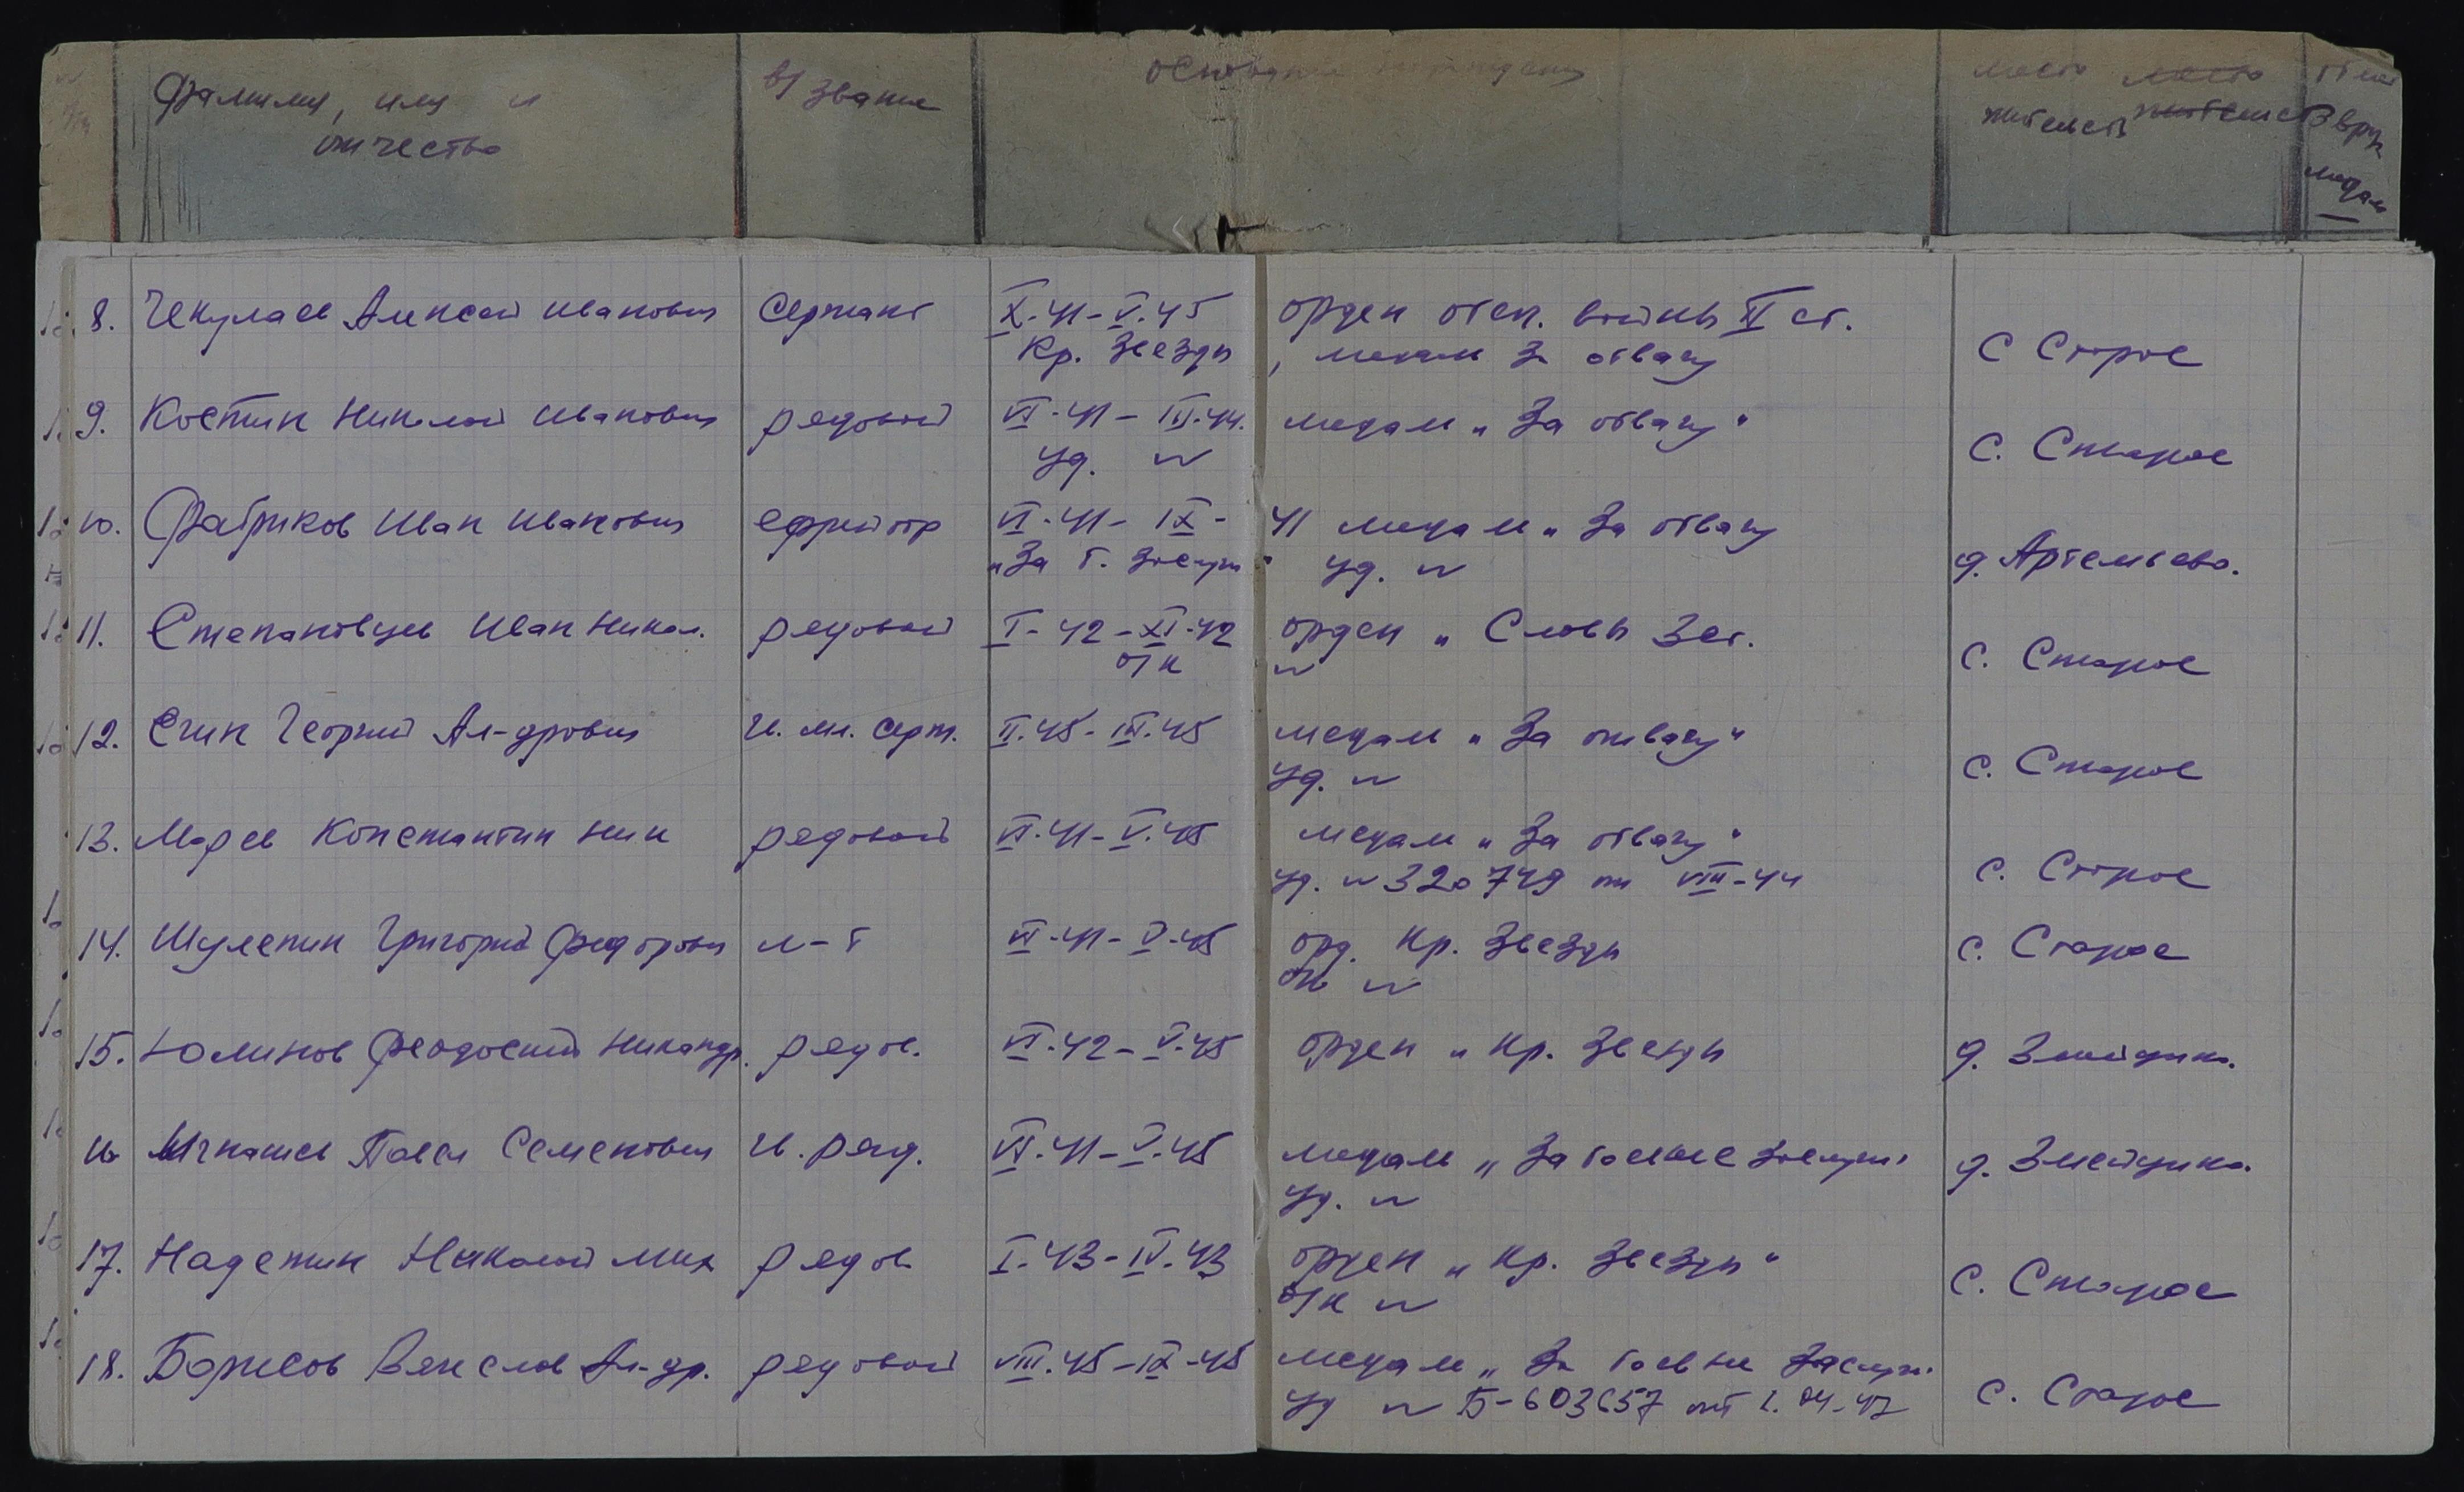 Фамилия, имя и отчество
в/звание
место жительств
8. Чекулаев Алексей Иванович сержант X-41-V.45 орден отеч. войны II ст.
Кр. Звезды, медаль За отвагу С Старое
9. Костин Николай Иванович рядовой VI-41-III.44. медаль „За отвагу"
уд. № с. Старое
10. Фабриков Иван Иванович ефрейтор VI-41-IX-41 медаль „За отвагу
„За б. заслуги" уд. № д. Артемьево.
11. Степановцев Иван Никол. рядовой I-42-XI-42 орден „Славы 3 ст.
о/к № с. Старое
12. Егин Георгий Ал-дрович г. мл. серж. II.45-III.45 медаль „За отвагу"
уд. № с. Старое
13. Константин Ник рядовой VI.41-V.45 медаль „За отвагу"
уд. № 320749 от VIII-44 с. Старое
14. Шулепин Григорий Федорович л-т VI-41-V-45 орд. Кр. Звезды
№ с. Старое
15. Юминов Феодосий Никандр. рядов. VI-42-V-45 орден „Кр. Звезды д.
16 Павел Семенович г. ряд. VI.41-V.45 медаль „За боевые заслуги"
уд. № д.
17. Надеткин Николай Мих рядов I-43-IV.43 орден „Кр. Звезды"
о/к № с. Старое
18. Борисов Вячеслав Ал-др. рядовой VIII.45-IX-45 медаль „За боевые заслуги.
уд № Б-603657 от с. Старое